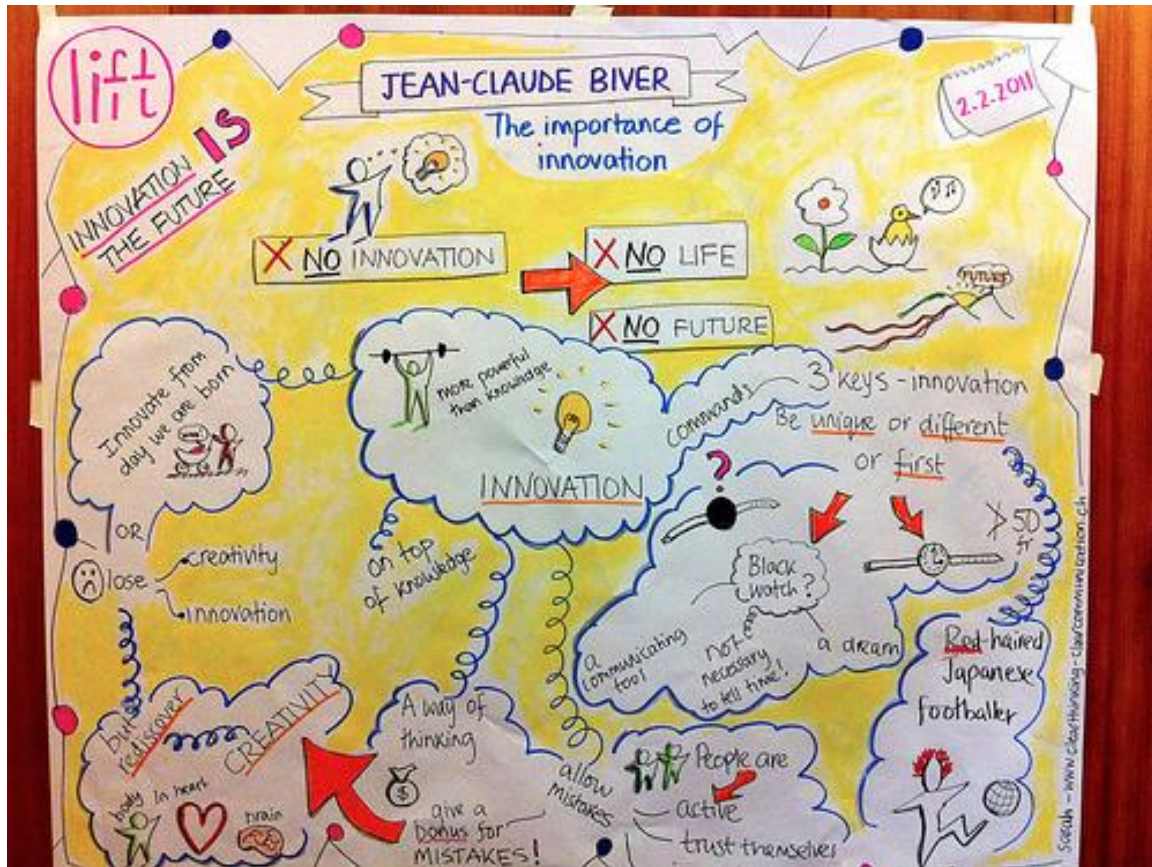 lift
lift
JEAN-CLAUDE BIVER
The importance of
innovation
2.2.2011
INNOVATION IS
THE FUTURE
X NO INNOVATION
X NO LIFE
X NO FUTURE
FUTURE
Innovate from
day we are born
OR
lose
creativity
innovation
more powerful
than knowledge
INNOVATION
on top
of knowledge
commands
3 keys - innovation
Be unique or different
or first
?
50
fr
Black
watch?
a
communicating
tool
not
necessary
to tell time!
a dream
Red-haired
Japanese
footballer
but
rediscover
CREATIVITY
body
in heart
brain
A way of
thinking
$
give a
bonus for
MISTAKES!
allow
mistakes
People are
active
trust themselves
Sarah - www.clearthinking-clearcommunication.ch